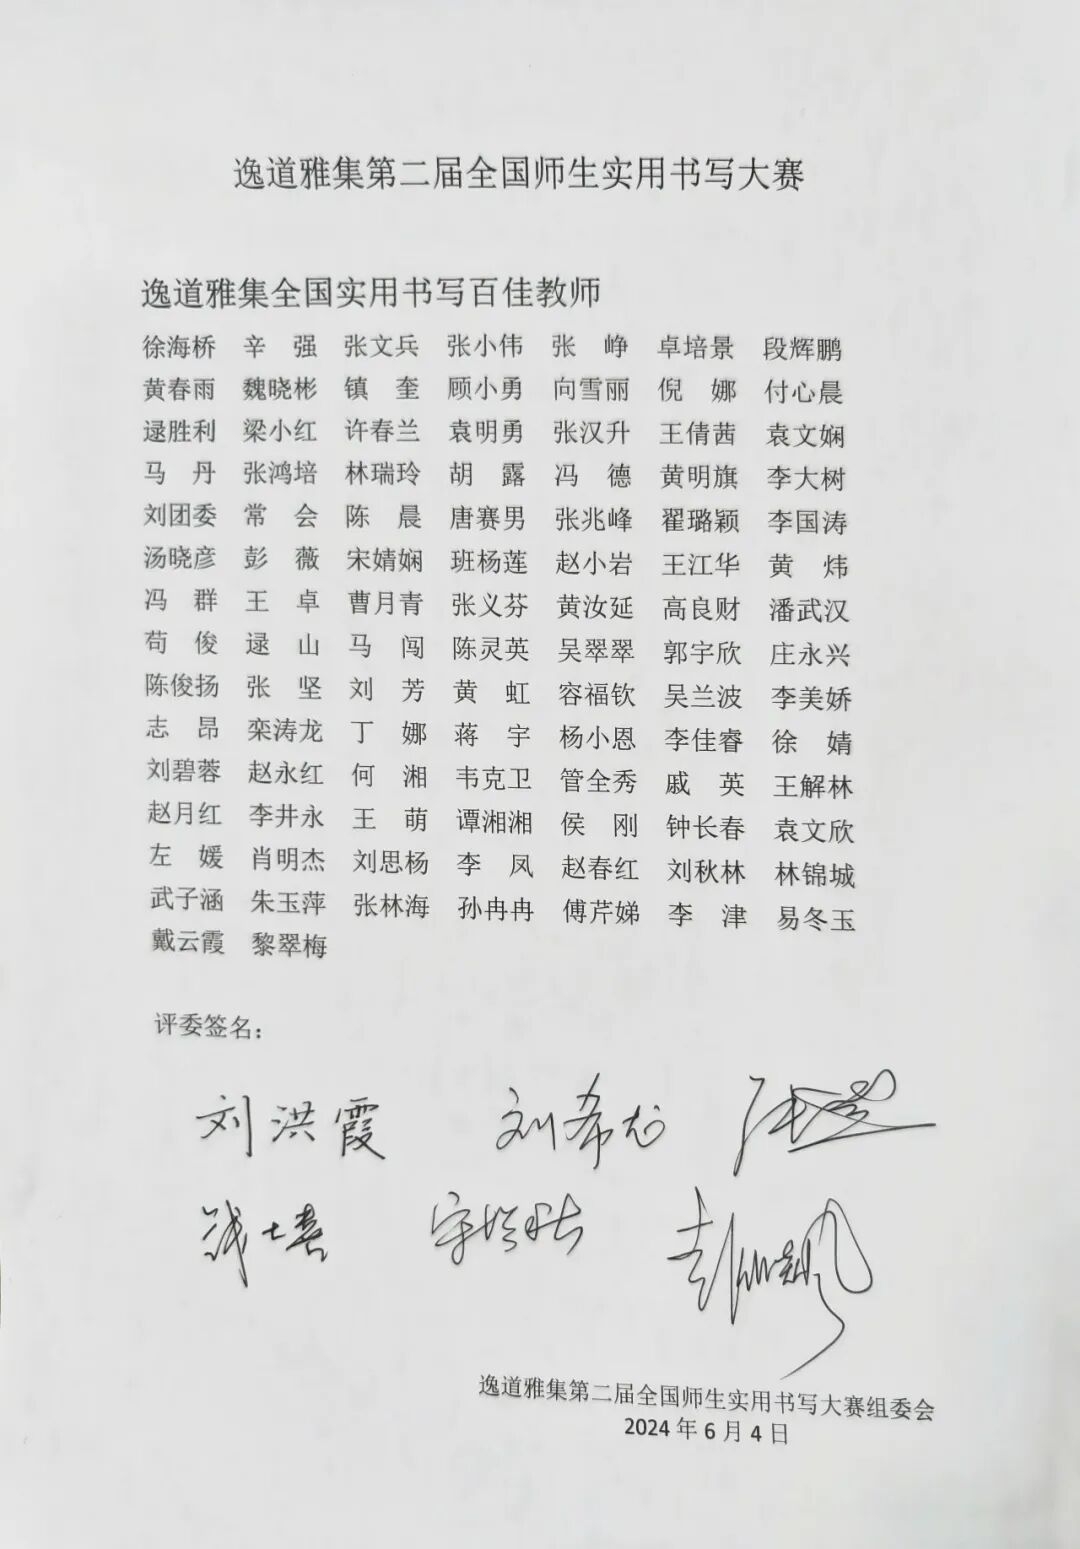 逸道雅集第二届全国师生实用书写大赛
逸道雅集全国实用书写百佳教师
徐海桥 辛 强 张文兵 张小伟 张 峥 卓培景 段辉鹏
黄春雨 魏晓彬 镇 奎 顾小勇 向雪丽 倪 娜 付心晨
逯胜利 梁小红 许春兰 袁明勇 张汉升 王倩茜 袁文娴
马 丹 张鸿培 林瑞玲 胡 露 冯 德 黄明旗 李大树
刘团委 常 会 陈 晨 唐赛男 张兆峰 翟璐颖 李国涛
汤晓彦 彭 薇 宋婧娴 班杨莲 赵小岩 王江华 黄 炜
冯 群 王 卓 曹月青 张义芬 黄汝延 高良财 潘武汉
苟 俊 逯 山 马 闯 陈灵英 吴翠翠 郭宇欣 庄永兴
陈俊扬 张 坚 刘 芳 黄 虹 容福钦 吴兰波 李美娇
志 昂 栾涛龙 丁 娜 蒋 宇 杨小恩 李佳睿 徐 婧
刘碧蓉 赵永红 何 湘 韦克卫 管全秀 戚 英 王解林
赵月红 李井永 王 萌 谭湘湘 侯 刚 钟长春 袁文欣
左 媛 肖明杰 刘思杨 李 凤 赵春红 刘秋林 林锦城
武子涵 朱玉萍 张林海 孙冉冉 傅芹娣 李 津 易冬玉
戴云霞 黎翠梅
评委签名：
刘洪霞 刘希龙
逸道雅集第二届全国师生实用书写大赛组委会
2024 年 6 月 4 日